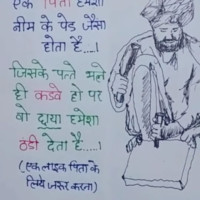 एक पिता हमेशा
नीम के पेड़ जैसा
होता है....।
जिसके पत्ते भले
ही कडवे हो पर
वो छाया हमेशा
ठंडी देता है....।
(एक लाइक पिता के
लिये जरूर करना)